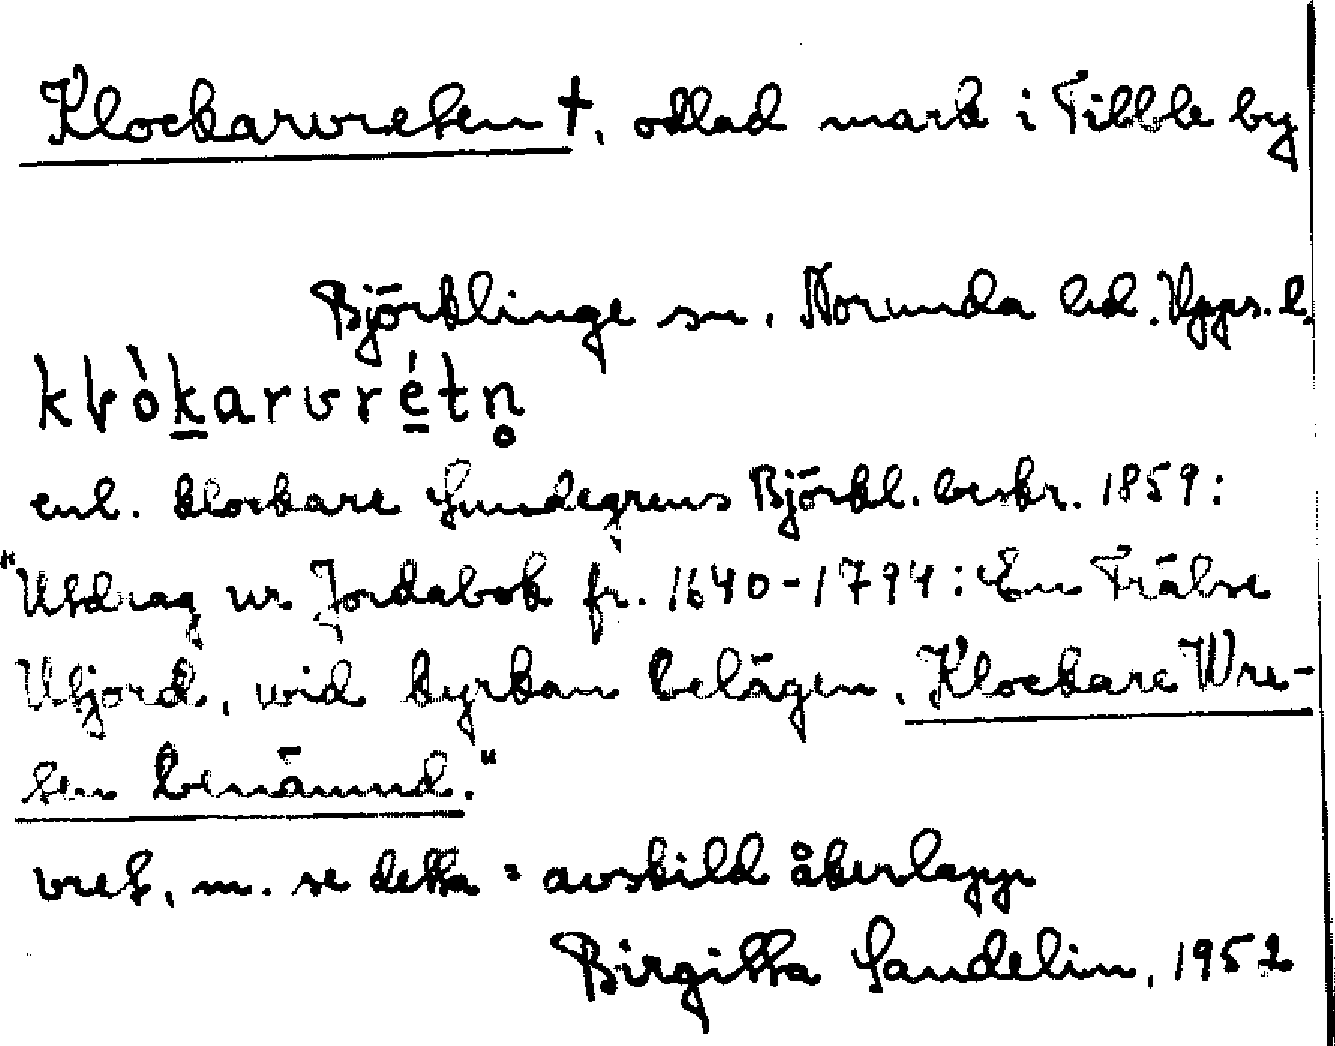 Klockarvreten †, odlad mark i Tibble by
Björklinge sn. Norunda hd. Upps. l.
kɭòkarvrétn̥
enl. klockare Sundegrens Björkl. beskr. 1859:
"Utdrag ur Jordabok fr. 1640-1794: En Frälse
Utjord, wid kyrkan belägen, Klockare Wre-
ten benämnd."
vret, m. se detta = avskild åkerlapp
Birgitta Sandelin, 1952